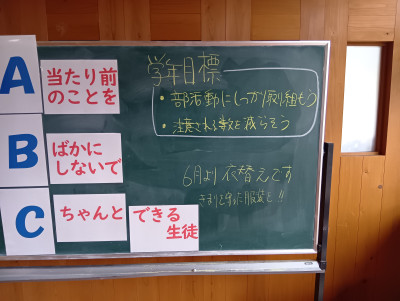 A
当たり前
のことを
B
ばかに
しないで
C
ちゃんと
できる
生徒
学年目標
・部活動にしっかり取り組もう
・注意される数を減らそう
6月より衣替えです
きまりを守った服装を!!